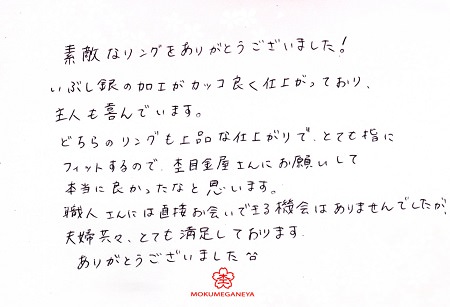 素敵なリングをありがとうございました！
いぶし銀の加工がカッコ良く仕上がっており、
主人も喜んでいます。
どちらのリングも上品な仕上がりで、とても指に
フィットするので、杢目金屋さんにお願いして
本当に良かったなと思います。
職人さんには直接お会いできる機会はありませんでしたが、
夫婦共々、とても満足しております。
ありがとうございました
MOKUMEGANEYA